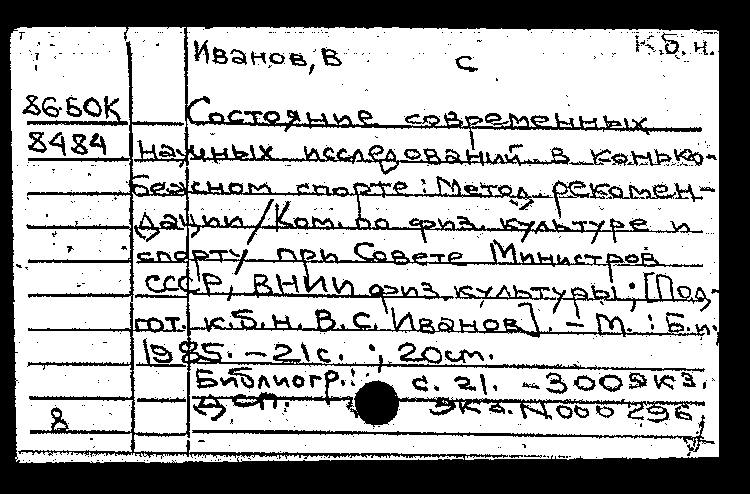 К.б.н.
Иванов, В С
8650К Состояние современных
8484 научных исследований в конько-
бежном спорте : Метод. рекомен-
дации / Ком. по физ. культуре и
спорту при Совете Министров
СССР, ВНИИ физ. культуры ; [Под-
гот. к.б.н. В.С. Иванов]. – М. : Б.и.,
1985. – 21 с. ; 20 см.
Библиогр.: с. 21. – 300 экз.
ДСП. Экз. N 000296
8